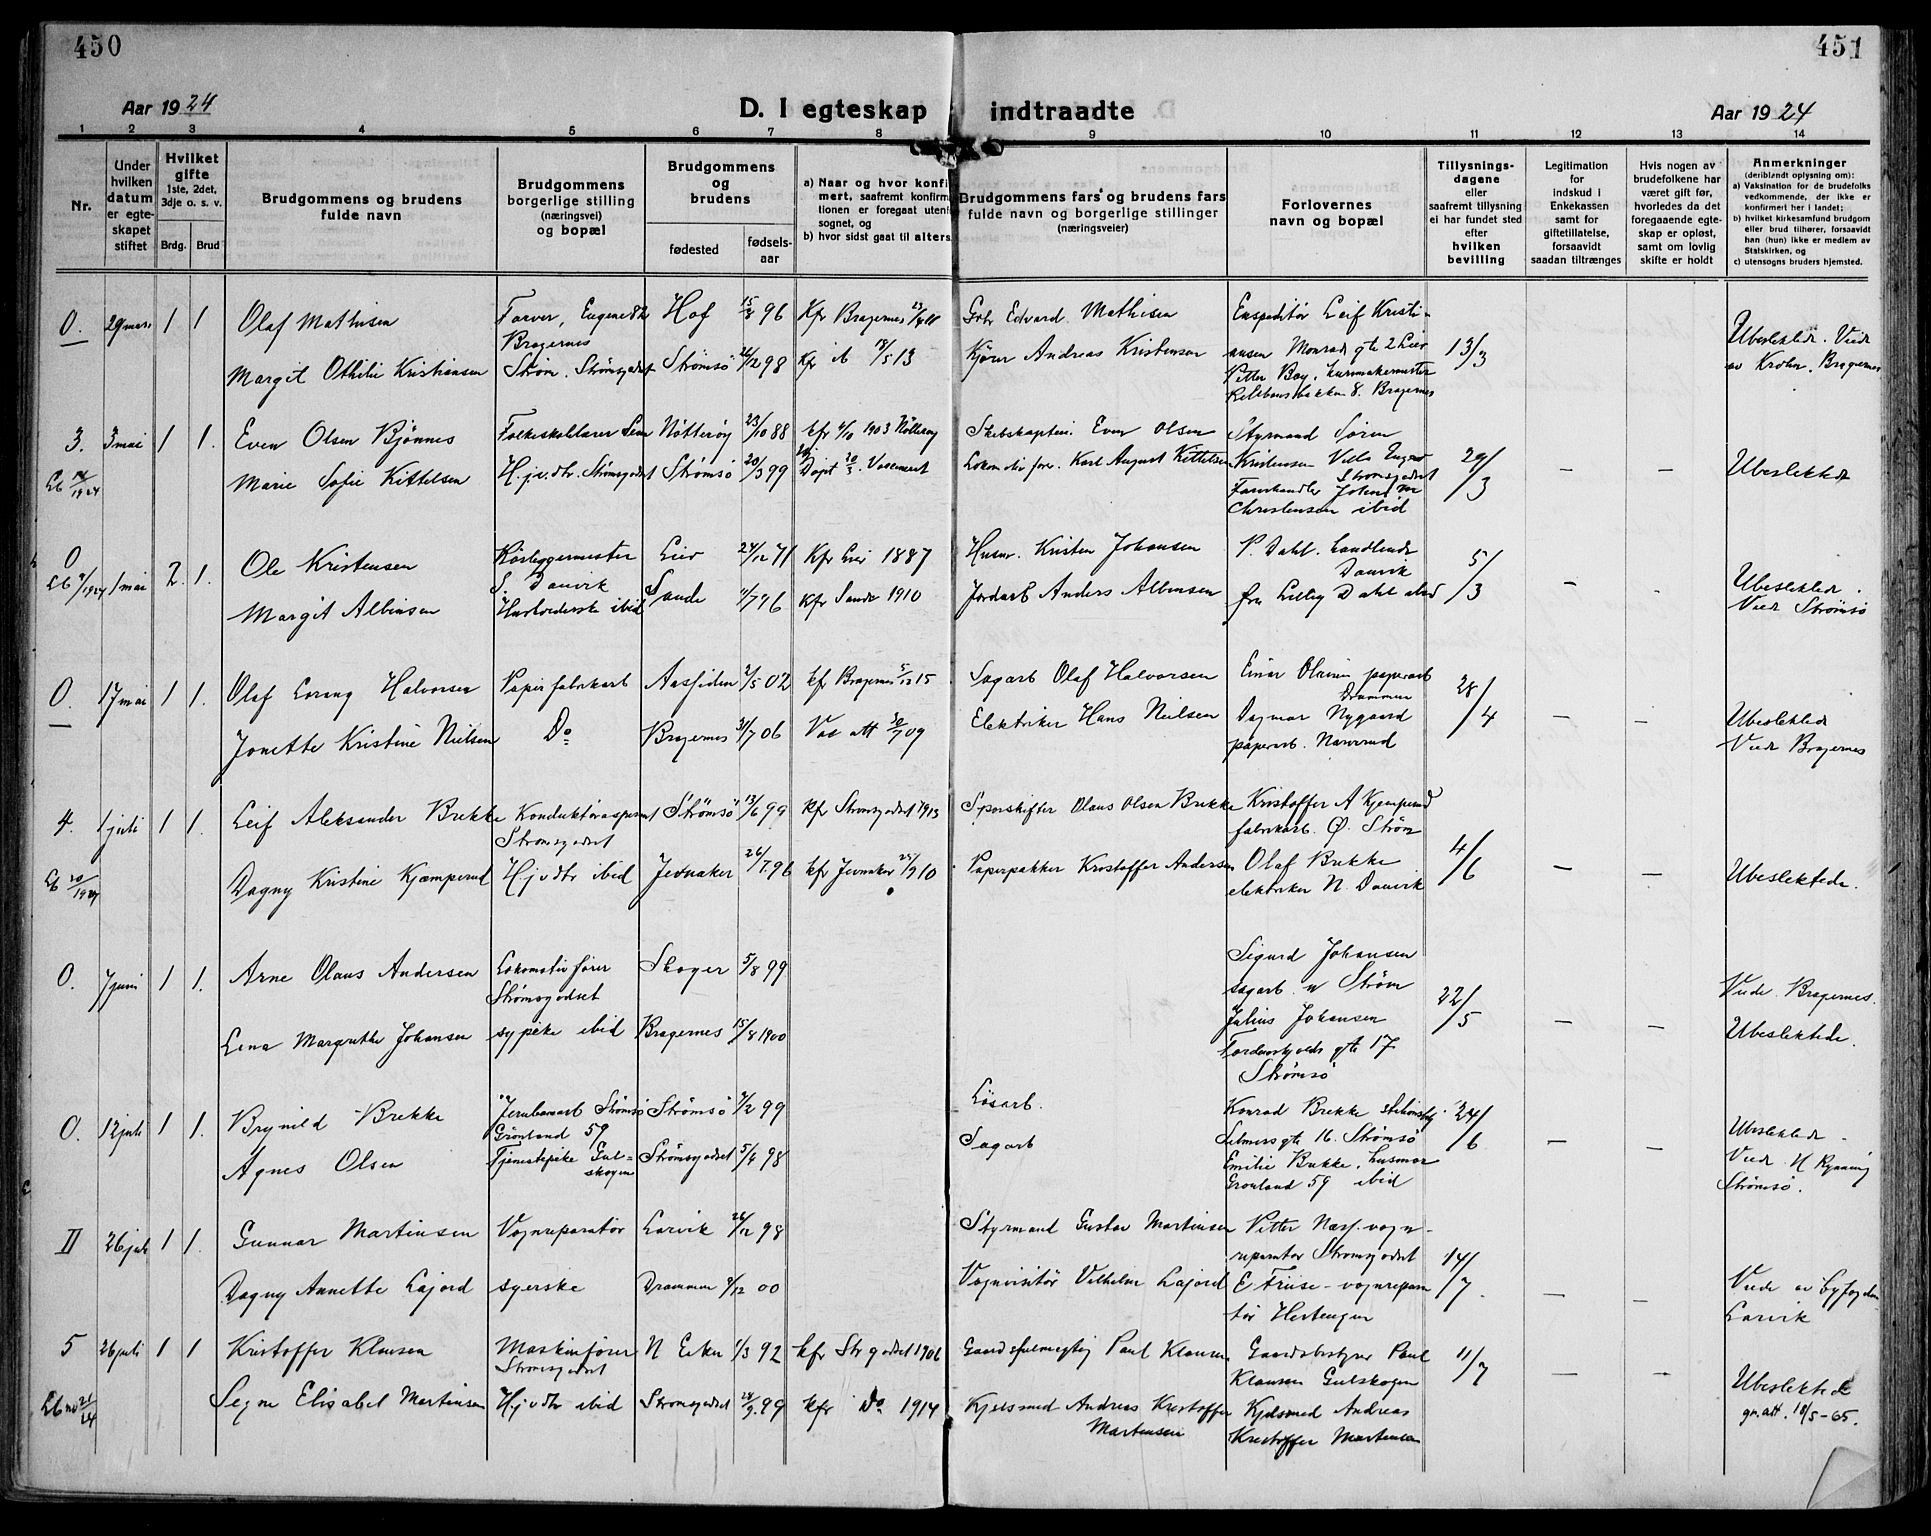 450
451
Aar 1924
D. I egteskap indtraadte
Aar 1924
1 2 3 4 5 6 7 8 9 10 11 12 13 14
Nr.
Under hvilken datum er egteskapet stiftet
Hvilket gifte 1ste, 2det, 3dje o. s. v.
Brdg. Brud
Brudgommens og brudens fulde navn
Brudgommens borgerlige stilling (næringsvei) og bopæl
Brudgommens og brudens
fødested
fødselsaar
a) Naar og hvor konfirmert, saafremt konfirmationen er foregaat utenfor sognet, og
b) hvor sidst gaat til alters
Brudgommens fars og brudens fars fulde navn og borgerlige stillinger (næringsveier)
Forlovernes navn og bopæl
Tillysningsdagene eller saafremt tillysning ei har fundet sted efter hvilken bevilling
Legitimation for indskud i Enkekassen samt for giftetillatelse, forsaavidt saadan tiltrænges
Hvis nogen av brudefolkene har været gift før, hvorledes da det foregaaende egteskap er opløst, samt om lovlig skifte er holdt
Anmerkninger (deriblandt oplysning om):
a) Vaksination for de brudefolks vedkommende, der ikke er konfirmert her i landet;
b) hvilket kirkesamfund brudgom eller brud tilhører, forsaavidt han (hun) ikke er medlem av Statskirken, og
c) utensogns bruders hjemsted.
0. 29 mars 1 1 Olaf Mathisen
Farver, Eugenedts Bragernes
Hof 15/8 96
Kfr Bragernes
Gbr Edvard Mathisen
Ekspeditør Leif Kristiansen Monrads gte 2 Lier
13/3
Ubeslektede. Viede av Krohn. Bragernes
Margit Othilie Kristiansen
Strøm. Strømsgodset
Strømsø 26/12 98
Kfr ib 18/5 13
Kjører Andreas Kristensen
Petter Boy, buntmakermester
8. Bragernes
3. 3 mai 1 1. Even Olsen Bjønnes
Folkeskolelærer Sem
Nøtterøy 23/10 88
kfr 4/10 1903 Nøtterøy
Skibskaptein. Even Olsen
Styrmand Søren Kristensen Villa Strømsgodset
29/3
—
—
Ubeslektede
Lb 14/1924
Marie Sofie Kittelsen
Hj. v. dtr. Strømsgodset
Strømsø 20/3 99
Døpt
Lokomotivfører. Karl August Kittelsen
Farvehandler Johan M Christensen ibid
0 1 mai 2. 1. Ole Kristensen
Rørleggermester S. Danvik
Lier 24/12 71
Kfr Lier 1887
Husm. Kristen Johansen
P. Dahl. Landlende Danvik
5/3
—
-
Ubeslektede.
Viet Strømsø
Margit Albinsen
Husholderske ibid
Sande 11/7 96
kfr Sande 1910
Jordarb Anders Albinsen
fru Lilly Dahl ibid
0. 17 mai 1 1 Olaf Lorang Halvorsen
Papirfabrikarb
Aassiden 2/5 02
kfr Bragernes 5/12 15
Sagarb Olaf Halvorsen
Einar Olsen paperarb Drammen
28/4
—
—
Ubeslektede
Viede Bragernes
Jonette Kristine Nielsen
Do
Bragernes 31/7 06
Vac att 30/7 09
Elektriker Hans Nielsen
Dagmar Nygaard paperarb. Narverud
4. 1 juli 1 1. Leif Aleksander Brekke
Konduktøraspirant Strømsgodset
Strømsø 13/6 99
kfr Strømsgodset 1913
Sporskifter Olaus Olsen Brekke
Kristoffer A Kjemperud fabrikarb. Ø. Strøm
4/6
—
—
Ubeslektede.
Lb 20/1924
Dagny Kristine Kjæmperud
Hj v dtr ibid
Jevnaker 26/7 96
kfr Jevnaker 25/9 10
Paperpakker Kristoffer Andersen
Olaf Brekke elektriker N. Danvik
0. 7 juni 1 1. Arne Olaus Andersen
Lokomotivfører Strømsgodset
Skoger 5/8 99
Sigurd Johansen sagarb. N Strøm
22/5
—
—
Viede Bragernes.
Ubeslektede.
Lina Margrethe Johansen
sypike ibid
Bragernes 15/8 1900
Julius Johansen Tordenskjolds gte 17 Strømsø
0. 12 juli 1 1. Brynild Brekke
Jernbanearb Strømsø Grønland 59
Strømsø 7/2 99
Løsarb.
Konrad Brekke Selmersgte 16. Strømsø
24/6
—
—
Ubeslektede
Viede N Rynning Strømsø.
Agnes Olsen
Tjenestepike Gulskogen
Strømsgodset 5/4 98
Sagarb
Emilie Brekke, husmor Grønland 59 ibid
II 26 juli 1 1. Gunnar Martinsen
Vognreparatør
Larvik 26/12 98
Styrmand Gustav Martinsen
Petter Næss. vognreparatør Strømsgodset
14/7
—
—
Viede av byfogden Larvik
Dagny Annette Lajord
syerske
Drammen 9/12 00
Vognvisitør Vilhelm Lajord
E Friise - vognreparatør Hertengen
5 26 juli 1 1 Kristoffer Klausen
Maskinfører Strømsgodset
N Eiker 1/3 92
kfr Str godset 1906
Gaardsfuldmegtig Paul Klausen
Gaardsbestyrer Paul Klausen Gulskogen
11/7
—
—
Ubeslektede
gn. att. 18/5-65.
Lb no 21/24
Signe Elisabet Martinsen
Hj v dtr ibid
Strømsgodset 28/9. 99
kfr Do 1914
Kjelsmed Andreas Kristoffer Martensen
Kjelsmed Andreas Kristoffer Martensen